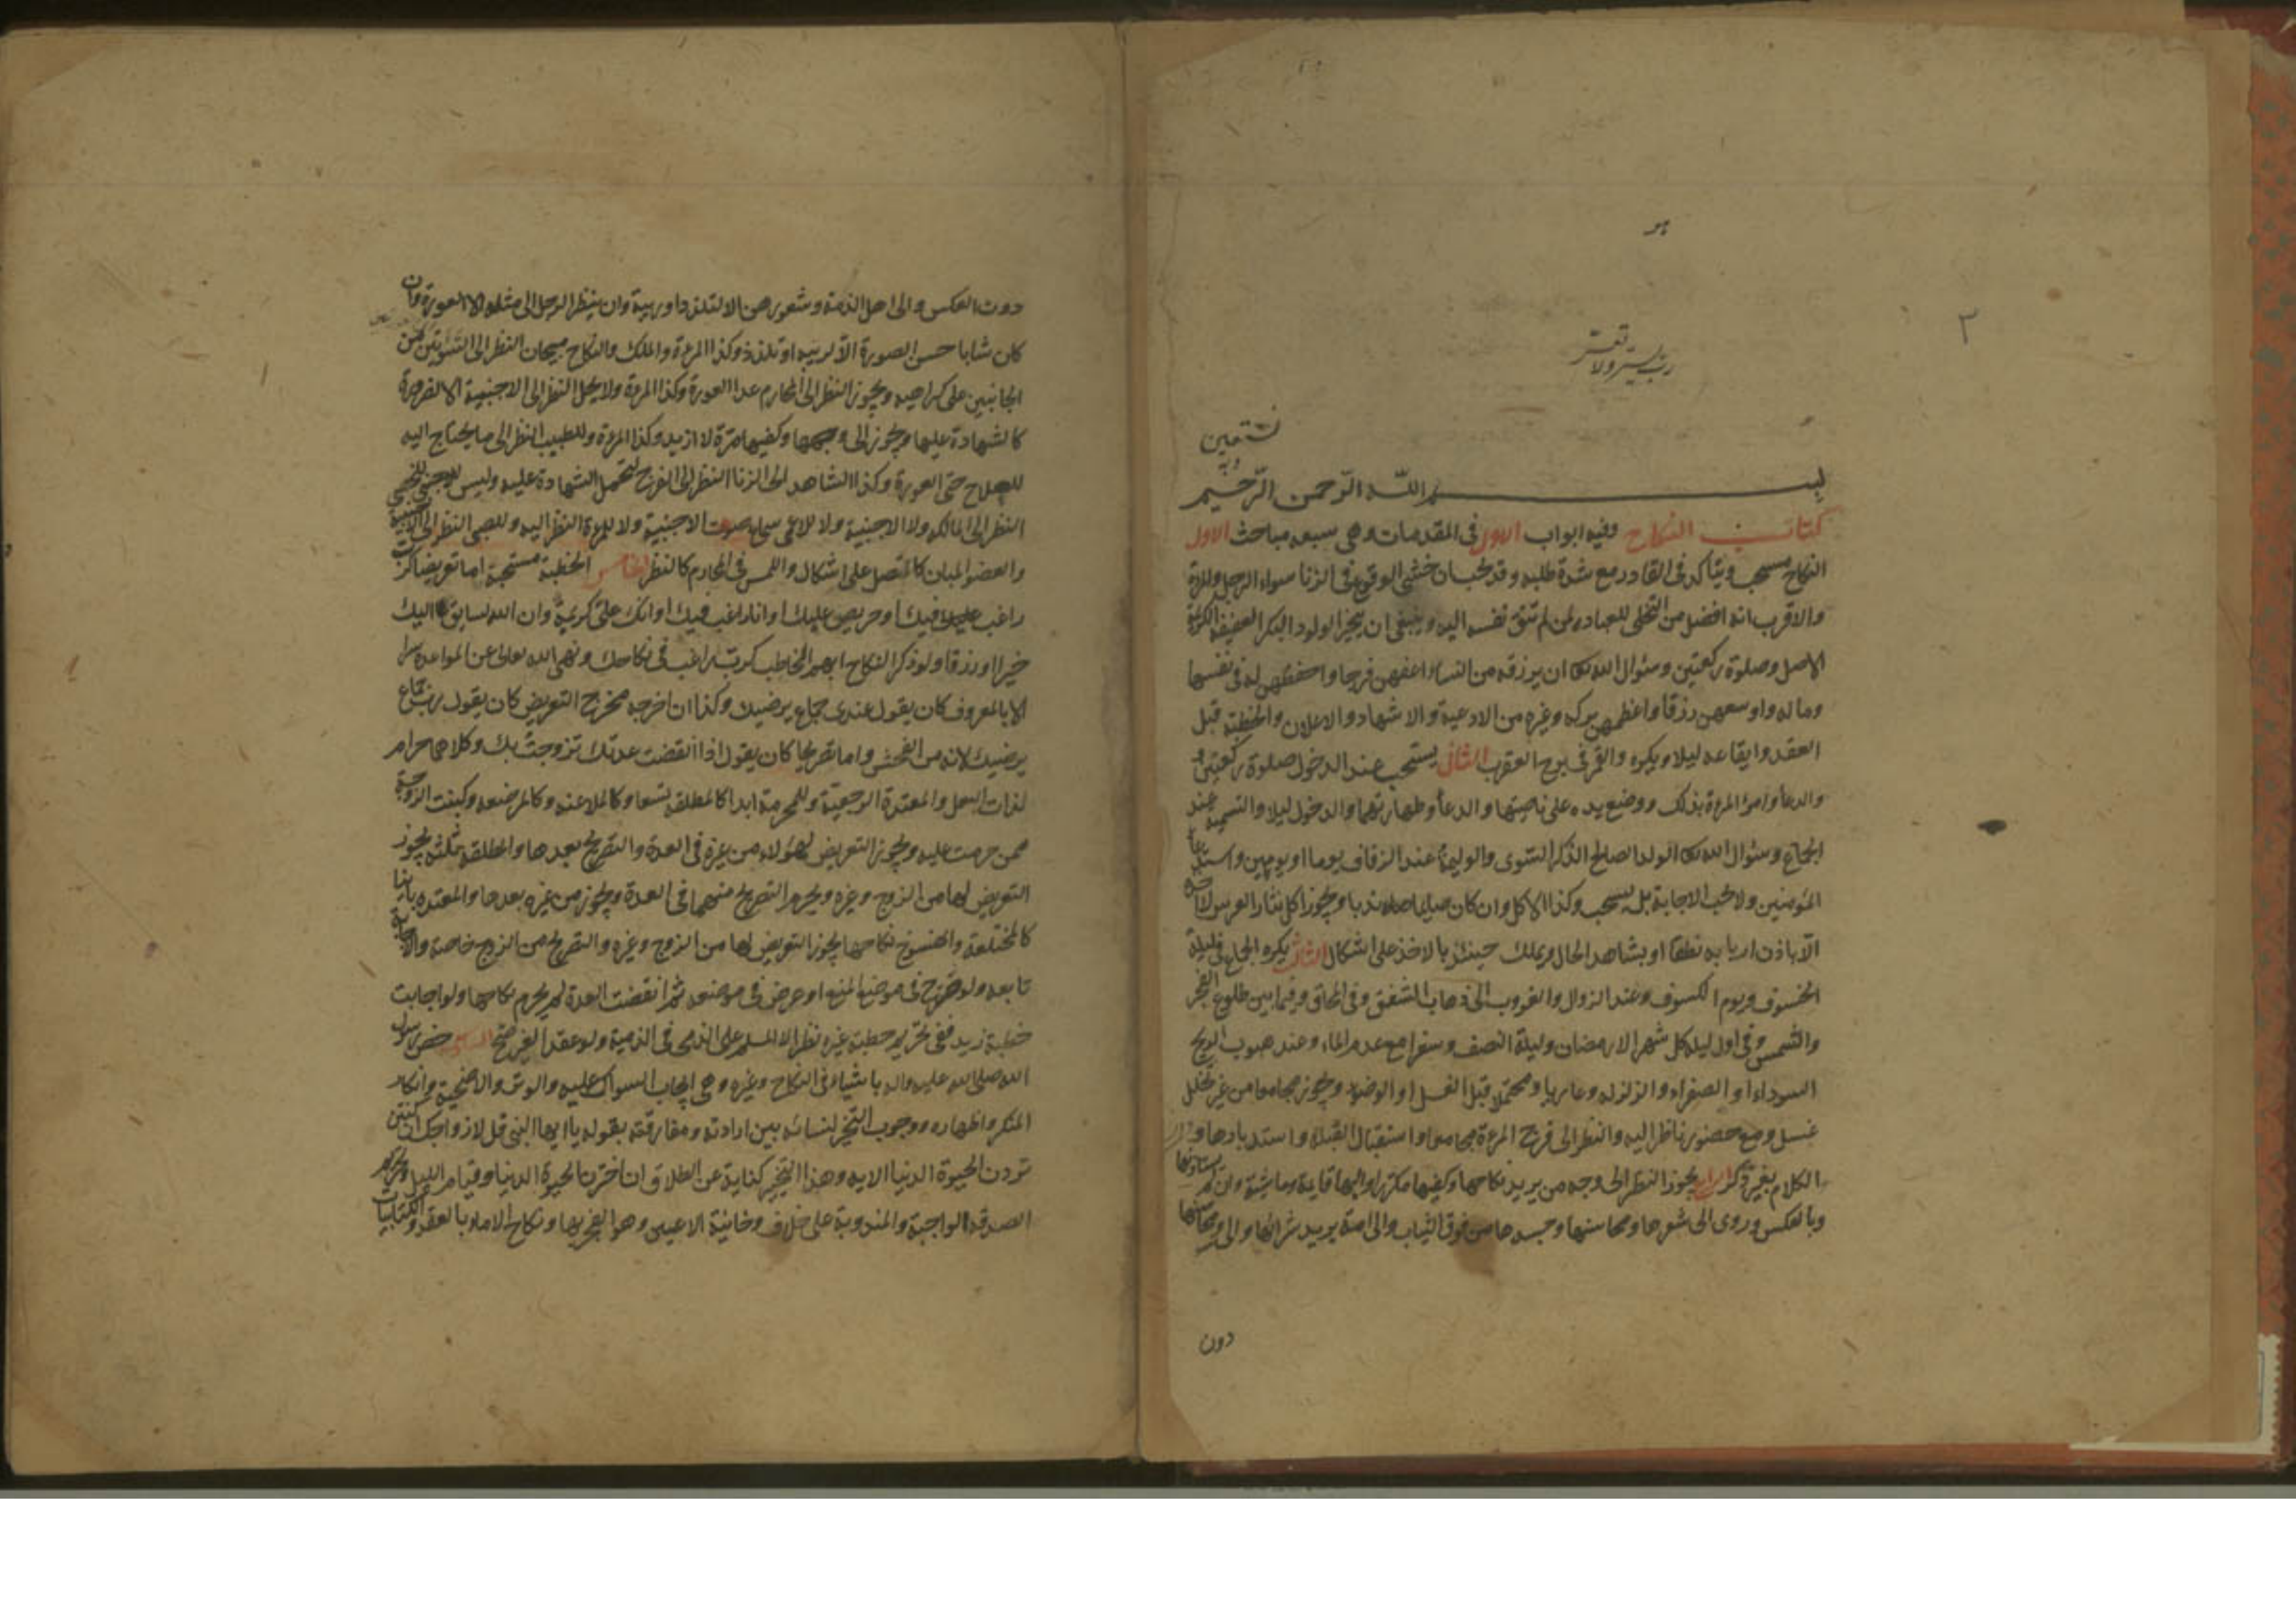 هو
٢
رب يسر ولا تعسر
وبه نستعين
بسم الله الرحمن الرحيم
كتاب النكاح وفيه ابواب الاول فى المقدمات وهى سبعه مباحث الاول
النكاح مستحب ويتأكد فى القادر مع شدة طلبه وقد يجب ان خشى الوقوع فى الزنا سواء الرجل والمرأة
والاقرب انه افضل من التخلى للعبادة لمن لم تتق نفسه اليه وينبغى ان يتخير الولود البكر العفيفة الكريمة
الاصل وصلوة ركعتين وسئوال الله تعالى ان يرزقه من النساء اعفهن فرجا واحفظهن له فى نفسها
وماله واوسعهن رزقا واعظمهن بركه وغيره من الادعية والاشهاد والاعلان والخطبة قبل
العقد وايقاعه ليلا ويكره والقمر فى برج العقرب الثانى يستحب عند الدخول صلوة ركعتين
والدعاء وامر المرءة بذلك ووضع يده على ناصيتها والدعاء وطهارتهما والدخول ليلا والتسمية عند
الجماع وسئوال الله تعالى الولد الصالح الذكر السوى والوليمة عند الزفاف يوما او يومين واستدعاء
المؤمنين ولا تجب الاجابة بل يستحب وكذا الاكل وان كان صايما صلوه ندبا ويجوز اكل نثار العرس لا اخذه
الا باذن اربابه نطقا او بشاهد الحال ويملك حينئذ بالاخذ على اشكال الثالث يكره الجماع فى ليلة
الخسوف ويوم الكسوف وعند الزوال والغروب الى ذهاب الشفق وفى المحاق وفيما بين طلوع الفجر
والشمس وفى اول ليله كل شهر الا رمضان وليلة النصف وسفرا مع عدم الماء وعند هبوب الريح
السوداء او الصفراء والزلزله وعاريا ومحتلما قبل الغسل او الوضوء ويجوز مجامعا من غير تخلل
غسل ومع حضور ناظر اليه والنظر الى فرج المرءة مجامعا واستقبال القبلة واستدبارها و
الكلام بغير ذكر الرابع يجوز النظر الى وجه من يريد نكاحها وكفيها مكررا وابها قايمة وماشية وان لم يستاذنها
وبالعكس وروى الى شعرها ومحاسنها وجسدها من فوق الثياب والى امة يريد شرائها والى شعرها ومحاسنها
دون
دون العكس والى اهل الذمة وشعورهن الا لتلذذ او ريبة وان ينظر الرجل الى مثله الا العورة وان
كان شابا حسن الصورة الا لريبه او تلذذ وكذا المرءة والملك والنكاح يبيحان النظر الى السوئتين من
الجانبين على كراهيه ويجوز النظر الى المحارم عدا العورة وكذا المرءة ولا يحل النظر الى الاجنبية الا لضرورة
كالشهادة عليها ويجوز الى وجهها وكفيها مرة لا ازيد وكذا المرءة وللطبيب النظر الى ما يحتاج اليه
للعلاج حتى العورة وكذا الشاهد الى الزنا النظر الى الفرج لتحمل الشهادة عليه وليس للخصى
النظر الى المالكه ولا الاجنبية ولا للاعمى سماع صوت الاجنبية ولا للمرءة النظر اليه وللصبى النظر الى الاجنبية
والعضو المبان كالمتصل على اشكال واللمس فى المحارم كالنظر الخامس الخطبة مستحبة اما تعريضا كرب
راغب فيك او حريص عليك او انا راغب فيك او انك على كريمة وان الله لسايق اليك
خيرا او رزقا ولو ذكر النكاح ابهم الخاطب كرب راغب فى نكاحك ونهى الله تعالى عن المواعدة سرا
الا بالمعروف كان يقول عندى جماع يرضيك وكذا ان اخرجه مخرج التعريض كان يقول رب جماع
يرضيك لانه من الفحش واما تصريحا كان يقول اذا انقضت عدتك تزوجت بك وكلاهما حرام
لذات البعل والمعتدة الرجعية وللمحرمة ابدا كالمطلقة تسعا وكالملاعنه وكالمرضعه وكبنت الزوجة
ممن حرمت عليه ويجوز التعريض لهؤلاء من غيره فى العدة والتصريح بعدها والمطلقة ثلثا يجوز
التعريض لها من الزوج وغيره ويحرم التصريح منهما فى العدة ويجوز من غيره بعدها والمعتده باينا
كالمختلعة والمفسوخ نكاحها يجوز التعريض لها من الزوج وغيره والتصريح من الزوج خاصة والاجابة
تابعه ولو صرح فى موضع المنع او عرض فى موضعه ثم انقضت العدة لم يحرم نكاحها ولو اجابت
خطبة زيد ففى تحريم خطبة غيره نظر الا المسلم على الذمى فى الذمية ولو عقد الغير صح السادس خص رسول
الله صلى الله عليه واله باشياء فى النكاح وغيره وهى ايجاب السواك عليه والوتر والاضحية وانكار
المنكر واظهاره ووجوب التخير لنسائه بين ارادته ومفارقته بقوله يا ايها النبى قل لازواجك ان كنتن
تردن الحيوة الدنيا الايه وهذا التخير كناية عن الطلاق ان اخترن الحيوة الدنيا وقيام الليل وتحريم
الصدقه الواجبة والمندوبة على خلاف وخائنة الاعين وهو الغمز بها ونكاح الاماء بالعقد والكتابيات